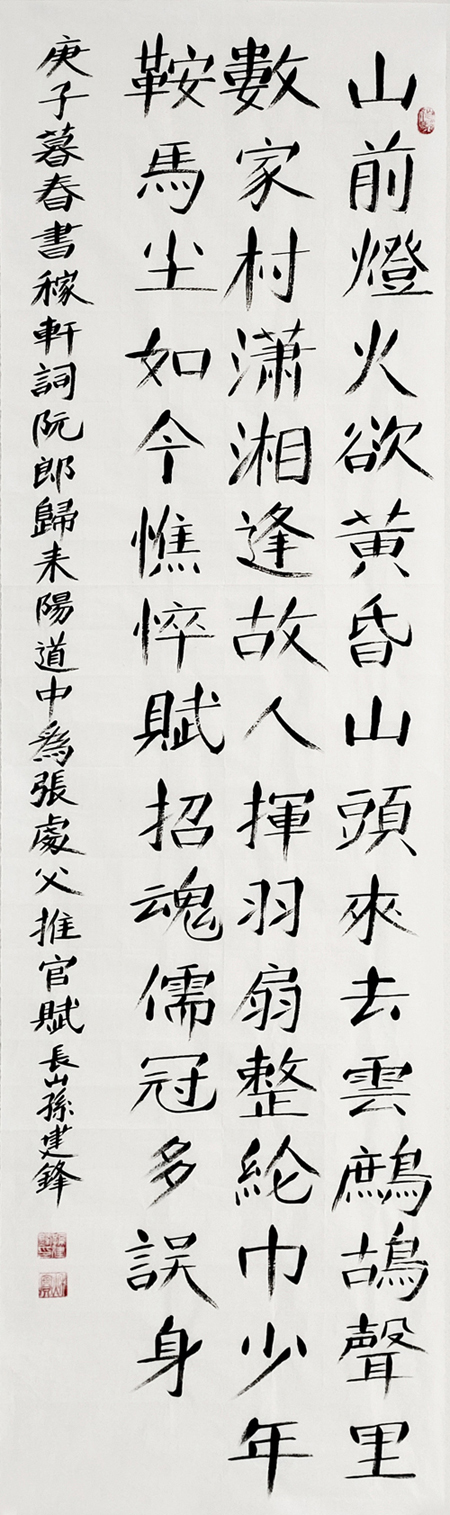 山前燈火欲黄昏山頭來去雲鷓鴣聲里
數家村潇湘逢故人揮羽扇整綸巾少年
鞍馬尘如今憔悴賦招魂儒冠多誤身
庚子暮春書稼軒詞阮郎歸耒陽道中為張處父推官賦長山孫建鋒